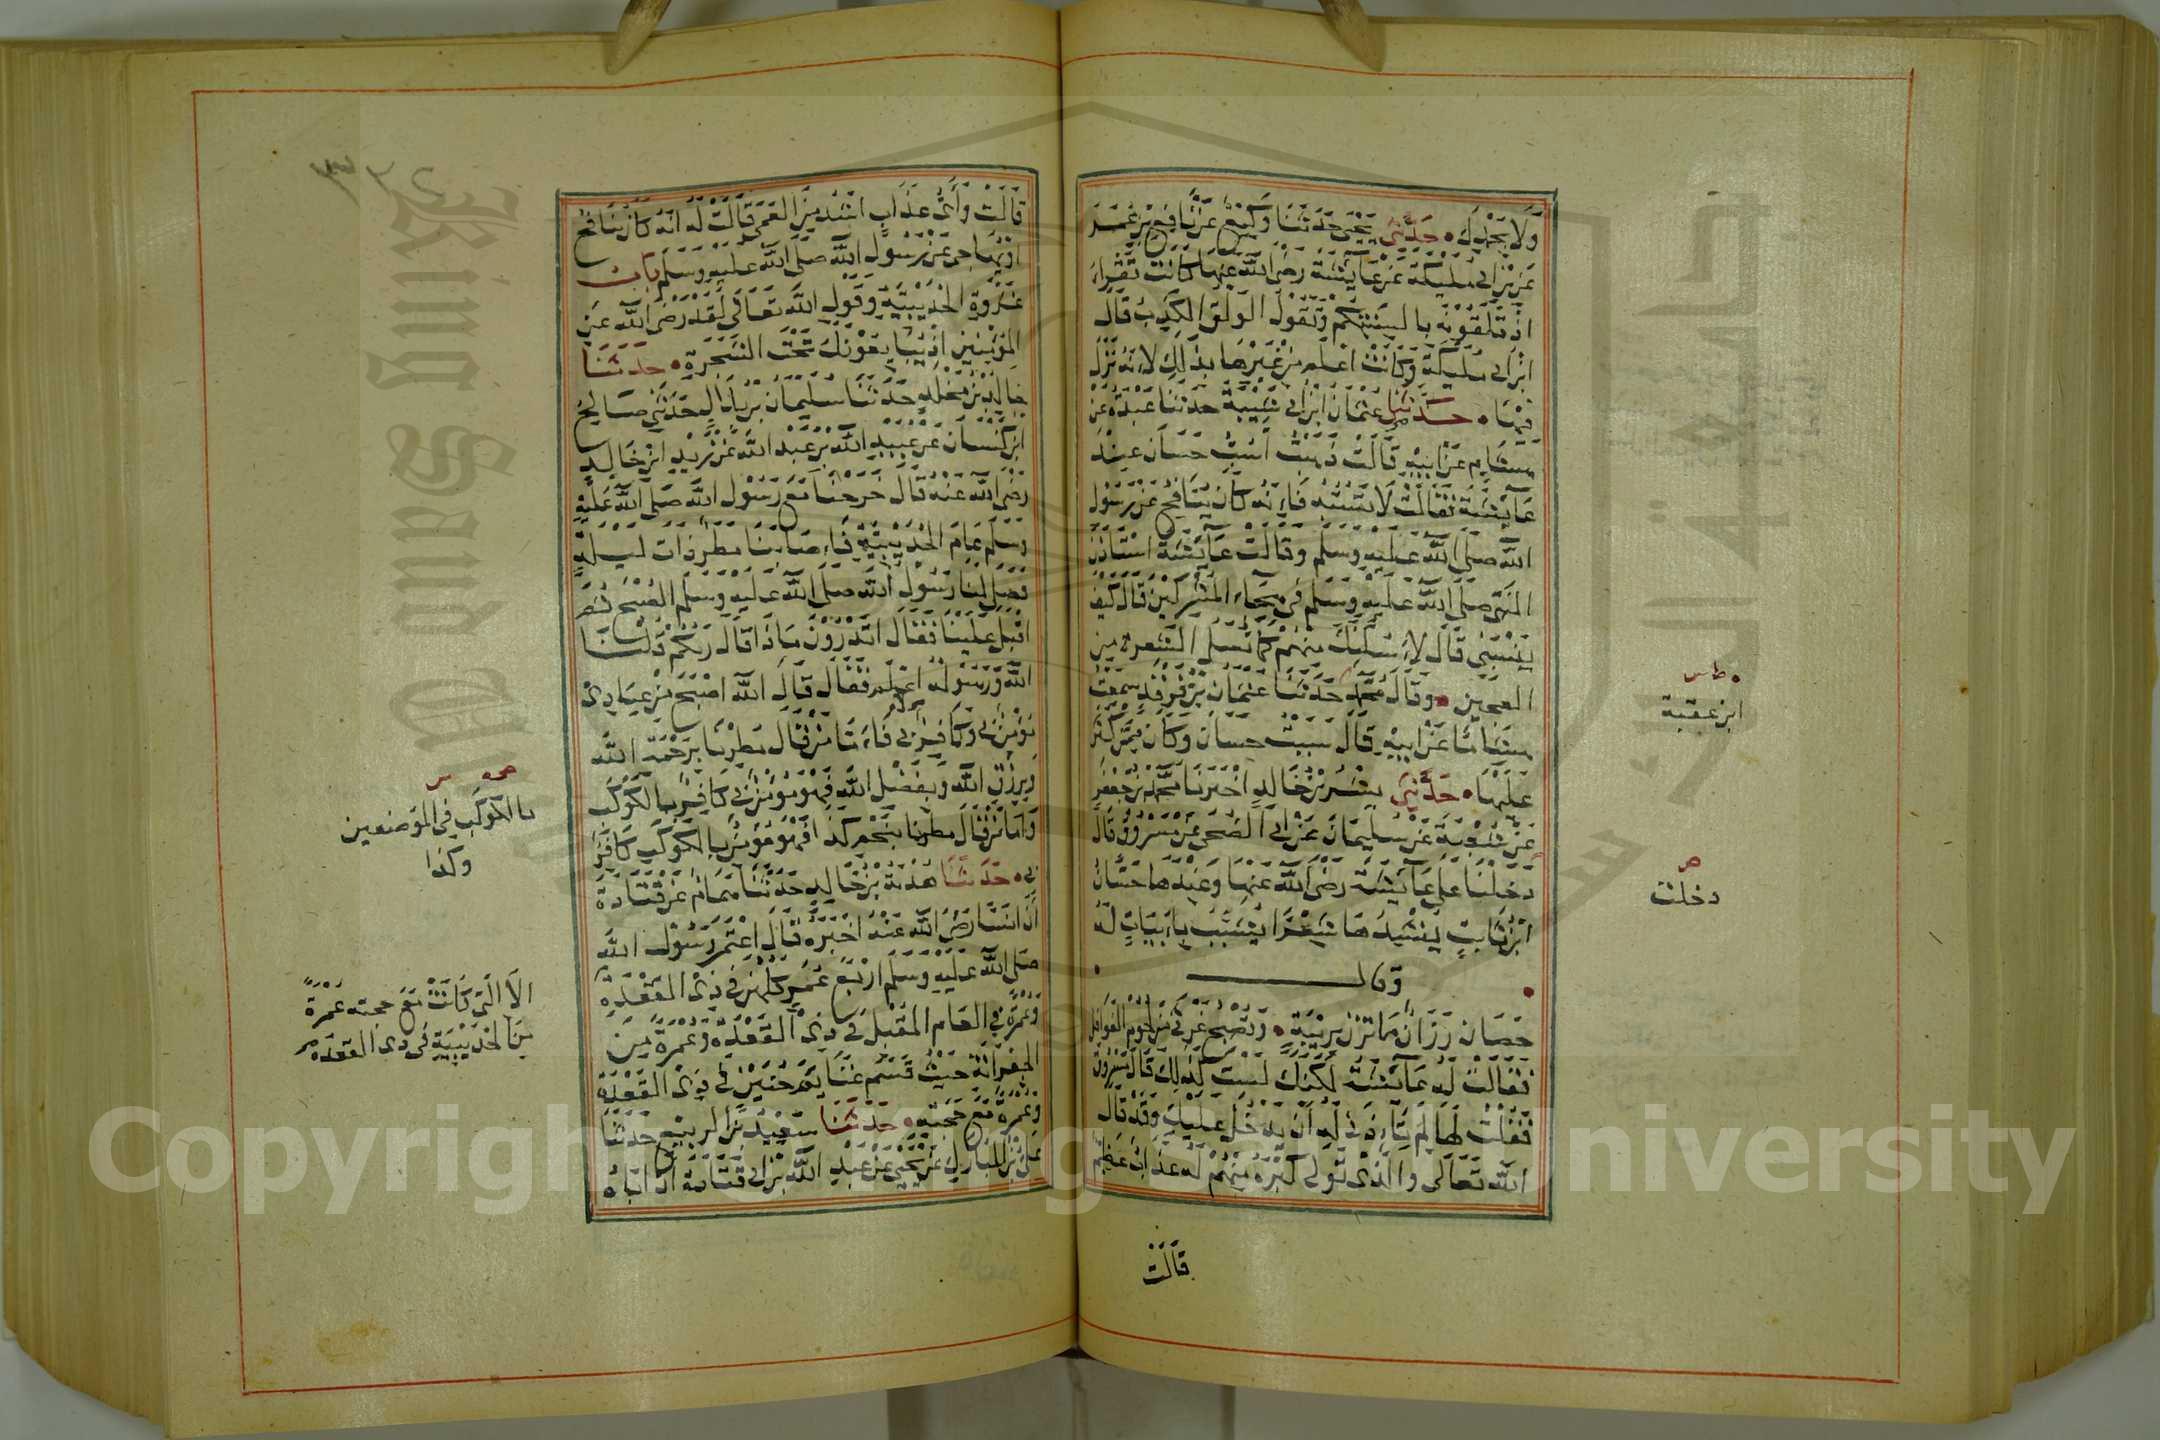 وَلَا بِحَمْدِكَ • حَدَّثَنِي يَحْيَى حَدَّثَنَا وَكِيعٌ عَنْ نَافِعِ بْنِ عُمَرَ
عَنِ ابْنِ أَبِي مُلَيْكَةَ عَنْ عَائِشَةَ رَضِيَ اللَّهُ عَنْهَا كَانَتْ تَقْرَأُ
إِذْ تَلِقُونَهُ بِأَلْسِنَتِكُمْ وَتَقُولُ الْوَلَقُ الْكَذِبُ قَالَ
ابْنُ أَبِي مُلَيْكَةَ وَكَانَتْ أَعْلَمَ مِنْ غَيْرِهَا بِذَلِكَ لِأَنَّهُ نَزَلَ
فِيهَا • حَدَّثَنَا عُثْمَانُ ابْنُ أَبِي شَيْبَةَ حَدَّثَنَا عَبْدَةُ عَنْ
هِشَامٍ عَنْ أَبِيهِ قَالَتْ ذَهَبْتُ أَسُبُّ حَسَّانَ عِنْدَ
عَائِشَةَ فَقَالَتْ لَا تَسُبُّهُ فَإِنَّهُ كَانَ يُنَافِحُ عَنْ رَسُولِ
اللَّهِ صَلَّى اللَّهُ عَلَيْهِ وَسَلَّمَ وَقَالَتْ عَائِشَةُ اسْتَأْذَنَ
النَّبِيَّ صَلَّى اللَّهُ عَلَيْهِ وَسَلَّمَ فِي هِجَاءِ الْمُشْرِكِينَ قَالَ كَيْفَ
بِنَسَبِي قَالَ لَأَسُلَّنَّكَ مِنْهُمْ كَمَا تُسَلُّ الشَّعَرَةُ مِنَ
الْعَجِينِ • وَقَالَ مُحَمَّدٌ حَدَّثَنَا عُثْمَانُ بْنُ فَرْقَدٍ سَمِعْتُ
هِشَامًا عَنْ أَبِيهِ قَالَ سَبَبْتُ حَسَّانَ وَكَانَ مِمَّنْ كَثَّرَ
عَلَيْهَا • حَدَّثَنِي بِشْرُ بْنُ خَالِدٍ أَخْبَرَنَا مُحَمَّدُ بْنُ جَعْفَرٍ
عَنْ شُعْبَةَ عَنْ سُلَيْمَانَ عَنْ أَبِي الضُّحَى عَنْ مَسْرُوقٍ قَالَ
دَخَلْنَا عَلَى عَائِشَةَ رَضِيَ اللَّهُ عَنْهَا وَعِنْدَهَا حَسَّانُ
ابْنُ ثَابِتٍ يُنْشِدُهَا شِعْرًا يُشَبِّبُ بِأَبْيَاتٍ لَهُ
• وَقَالَ •
حَصَانٌ رَزَانٌ مَا تُزَنُّ بِرِيبَةٍ • وَتُصْبِحُ غَرْثَى مِنْ لُحُومِ الْغَوَافِلِ
فَقَالَتْ لَهُ عَائِشَةُ لَكِنَّكَ لَسْتَ كَذَلِكَ قَالَ مَسْرُوقٌ
فَقُلْتُ لَهَا لِمَ تَأْذَنِي لَهُ أَنْ يَدْخُلَ عَلَيْكِ وَقَدْ قَالَ
اللَّهُ تَعَالَى وَالَّذِي تَوَلَّى كِبْرَهُ مِنْهُمْ لَهُ عَذَابٌ عَظِيمٌ
قَالَتْ
ابن عقبة
دخلت
قَالَتْ وَأَيُّ عَذَابٍ أَشَدُّ مِنَ الْعَمَى قَالَتْ لَهُ إِنَّهُ كَانَ يُنَافِحُ
أَوْ يُهَاجِي عَنْ رَسُولِ اللَّهِ صَلَّى اللَّهُ عَلَيْهِ وَسَلَّمَ بَابُ
غَزْوَةِ الْحُدَيْبِيَةِ وَقَوْلِ اللَّهِ تَعَالَى لَقَدْ رَضِيَ اللَّهُ عَنِ
الْمُؤْمِنِينَ إِذْ يُبَايِعُونَكَ تَحْتَ الشَّجَرَةِ • حَدَّثَنَا
خَالِدُ بْنُ مَخْلَدٍ حَدَّثَنَا سُلَيْمَانُ بْنُ بِلَالٍ حَدَّثَنِي صَالِحُ
ابْنُ كَيْسَانَ عَنْ عُبَيْدِ اللَّهِ بْنِ عَبْدِ اللَّهِ عَنْ زَيْدِ ابْنِ خَالِدٍ
رَضِيَ اللَّهُ عَنْهُ قَالَ خَرَجْنَا مَعَ رَسُولِ اللَّهِ صَلَّى اللَّهُ عَلَيْهِ
وَسَلَّمَ عَامَ الْحُدَيْبِيَةِ فَأَصَابَنَا مَطَرٌ ذَاتَ لَيْلَةٍ
فَصَلَّى لَنَا رَسُولُ اللَّهِ صَلَّى اللَّهُ عَلَيْهِ وَسَلَّمَ الصُّبْحَ ثُمَّ
أَقْبَلَ عَلَيْنَا فَقَالَ أَتَدْرُونَ مَاذَا قَالَ رَبُّكُمْ قُلْنَا
اللَّهُ وَرَسُولُهُ أَعْلَمُ فَقَالَ قَالَ اللَّهُ أَصْبَحَ مِنْ عِبَادِي
مُؤْمِنٌ بِي وَكَافِرٌ بِي فَأَمَّا مَنْ قَالَ مُطِرْنَا بِرَحْمَةِ اللَّهِ
وَبِرِزْقِ اللَّهِ وَبِفَضْلِ اللَّهِ فَهُوَ مُؤْمِنٌ بِي كَافِرٌ بِالْكَوْكَبِ
وَأَمَّا مَنْ قَالَ مُطِرْنَا بِنَجْمِ كَذَا فَهُوَ مُؤْمِنٌ بِالْكَوْكَبِ كَافِرٌ
بِي • حَدَّثَنَا هُدْبَةُ بْنُ خَالِدٍ حَدَّثَنَا هَمَّامٌ عَنْ قَتَادَةَ
أَنَّ أَنَسًا رَضِيَ اللَّهُ عَنْهُ أَخْبَرَهُ قَالَ اعْتَمَرَ رَسُولُ اللَّهِ
صَلَّى اللَّهُ عَلَيْهِ وَسَلَّمَ أَرْبَعَ عُمَرٍ كُلُّهُنَّ فِي ذِي الْقَعْدَةِ
وَعُمْرَةً فِي الْعَامِ الْمُقْبِلِ فِي ذِي الْقَعْدَةِ وَعُمْرَةً مِنَ
الْجِعْرَانَةِ حَيْثُ قَسَمَ غَنَائِمَ حُنَيْنٍ فِي ذِي الْقَعْدَةِ
وَعُمْرَةً مَعَ حَجَّتِهِ • حَدَّثَنَا سَعِيدُ بْنُ الرَّبِيعِ حَدَّثَنَا
عَلِيُّ بْنُ الْمُبَارَكِ عَنْ يَحْيَى عَنْ عَبْدِ اللَّهِ بْنِ أَبِي قَتَادَةَ أَنَّ أَبَاهُ
بالكوكب في الموضعين
وكذا
إِلَّا الَّتِي كَانَتْ مَعَ حجته عُمْرَةً
مِنَ الْحُدَيْبِيَةِ فِي ذِي الْقَعْدَةِ
King Saud University
Copyright © King Saud University